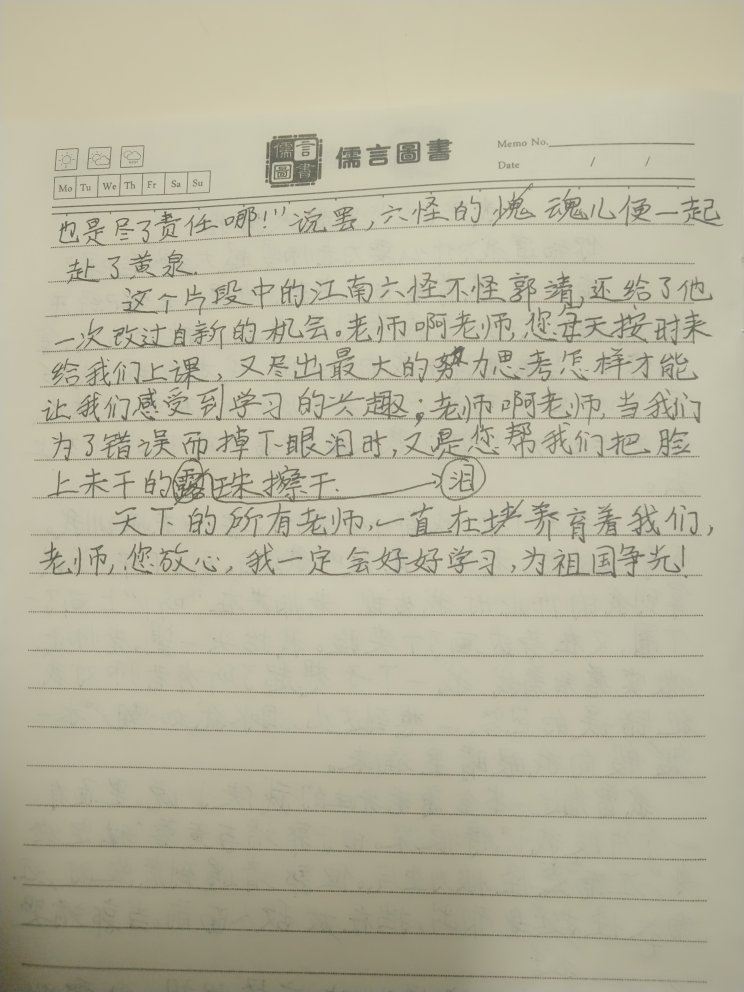 儒言圖書
儒言圖書
Memo No.
Date / /
Mo Tu We Th Fr Sa Su
也是尽了责任哪!”说罢,六怪的魂儿便一起
赴了黄泉.
这个片段中的江南六怪不怪郭靖,还给了他
一次改过自新的机会。老师啊老师,您每天按时来
给我们上课,又尽出最大的努力思考怎样才能
让我们感受到学习的兴趣;老师啊老师,当我们
为了错误而掉下眼泪时,又是您帮我们把脸
上未干的露珠擦干. 泪
天下的所有老师,一直在养育着我们,
老师,您放心,我一定会好好学习,为祖国争光!